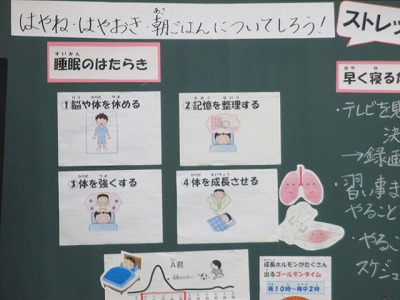 はやね・はやおき・朝ごはんについてしろう!
睡眠のはたらき
①脳や体を休める
②記憶を整理する
③体を強くする
④体を成長させる
A君
成長ホルモンがたくさん
出るゴールデンタイム
夜10時～夜中2時
ストレッ
早く寝るた
・テレビを見
決
→録画
・習い事ま
やること
・やるこ
スケジュ